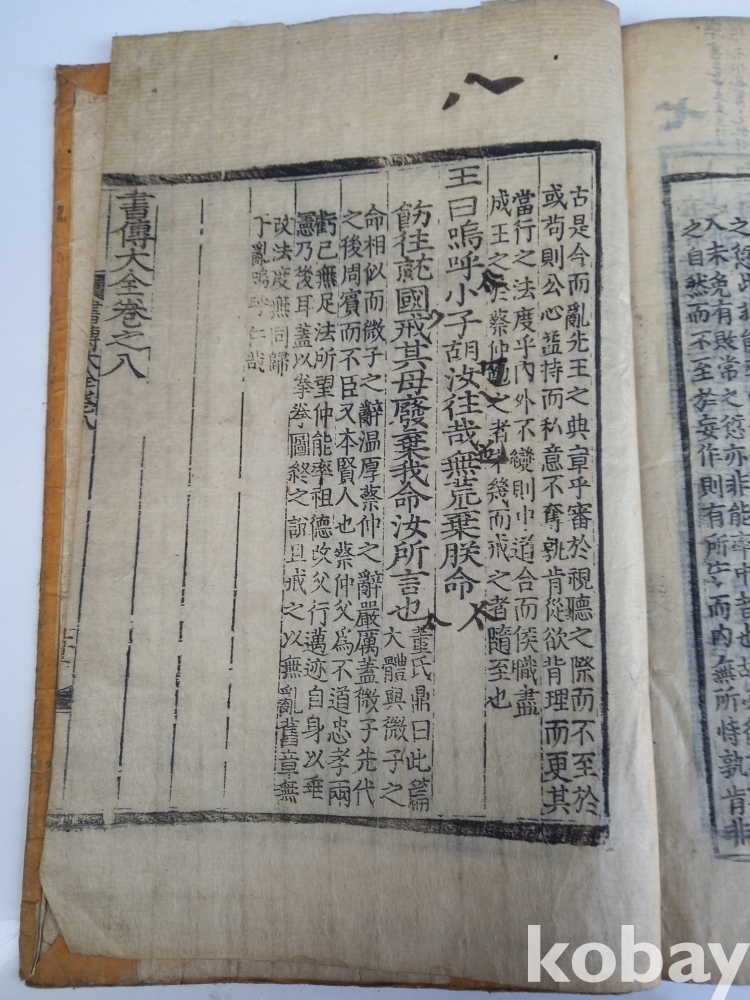 七
入未免有敗常之愆亦非能率中者也
之自然而不至於妄作則有所守而內無所恃孰肯非
八
古是今而亂先王之典章乎審於視聽之際而不至於
或苟則公心益持而私意不奪孰肯從欲背理而更其
當行之法度乎內外不變則中道合而侯職盡
成王之於蔡仲勉之者幾而戒之者隨至也
王曰嗚呼小子胡汝往哉無荒棄朕命
飭往就國戒其毋廢棄我命汝所言也
董氏鼎曰此篇
大體與微子之
命相似而微子之辭溫厚蔡仲之辭嚴厲蓋微子先代
之後周賓而不臣又本賢人也蔡仲父爲不道忠孝兩
虧已無足法所望仲能率祖德改父行邁迹自身以垂
憲乃後耳蓋以拳拳圖終之詔且戒之以無亂舊章無
改法度無同歸
于亂嗚呼仁哉
書傳大全卷之八
書傳大全卷八
kobay